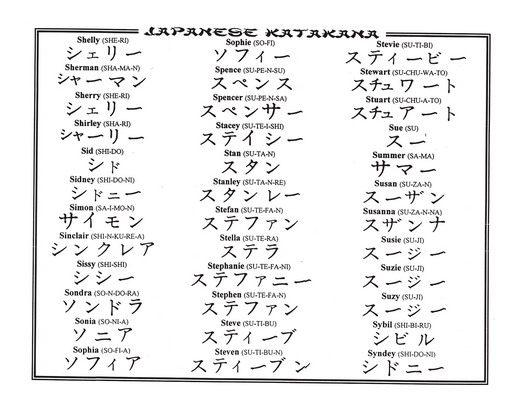 JAPANESE KATAKANA
Shelly (SHE-RI)
シェリー
Sherman (SHA-MA-N)
シャーマン
Sherry (SHE-RI)
シェリー
Shirley (SHA-RI)
シャーリー
Sid (SHI-DO)
シド
Sidney (SHI-DO-NI)
シドニー
Simon (SA-I-MO-N)
サイモン
Sinclair (SHI-N-KU-RE-A)
シンクレア
Sissy (SHI-SHI)
シシー
Sondra (SO-N-DO-RA)
ソンドラ
Sonia (SO-NI-A)
ソニア
Sophia (SO-FI-A)
ソフィア
Sophie (SO-FI)
ソフィー
Spence (SU-PE-N-SU)
スペンス
Spencer (SU-PE-N-SA)
スペンサー
Stacey (SU-TE-I-SHI)
ステイシー
Stan (SU-TA-N)
スタン
Stanley (SU-TA-N-RE)
スタンレー
Stefan (SU-TE-FA-N)
ステファン
Stella (SU-TE-RA)
ステラ
Stephanie (SU-TE-FA-NI)
ステファニー
Stephen (SU-TE-FA-N)
ステファン
Steve (SU-TI-BU)
スティーブ
Steven (SU-TI-BU-N)
スティーブン
Stevie (SU-TI-BI)
スティービー
Stewart (SU-CHU-WA-TO)
スチュワート
Stuart (SU-CHU-A-TO)
スチュアート
Sue (SU)
スー
Summer (SA-MA)
サマー
Susan (SU-ZA-N)
スーザン
Susanna (SU-ZA-N-NA)
スザンナ
Susie (SU-JI)
スージー
Suzie (SU-JI)
スージー
Suzy (SU-JI)
スージー
Sybil (SHI-BI-RU)
シビル
Syndey (SHI-DO-NI)
シドニー